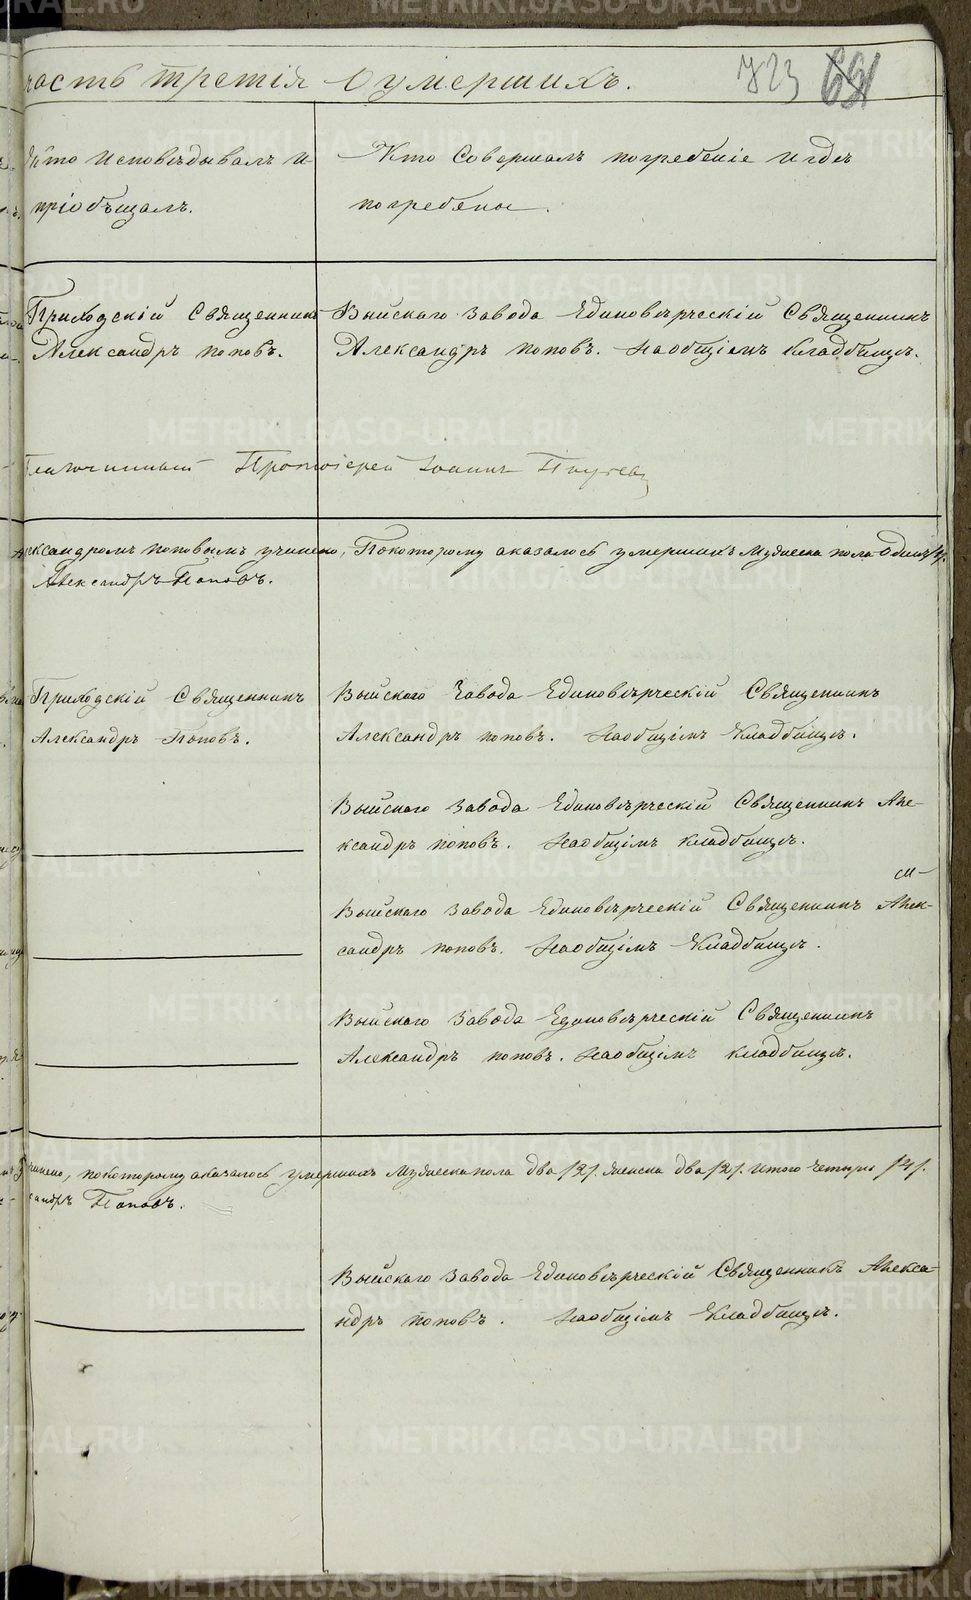 часть третія о умершихъ.
723 651
Кто исповѣдывалъ и
пріобщалъ.
Кто совершалъ погребеніе и гдѣ
погребены.
Приходскій Священникъ
Александръ Поповъ.
Выйскаго завода Единовѣрческій Священникъ
Александръ Поповъ. На общемъ кладбищѣ.
Благочинный Протоіерей Іоаннъ
ександромъ Поповымъ учинено, По которому оказалось умершихъ мужеска пола одинъ /1/.
Александръ Поповъ.
Приходскій Священникъ
Александръ Поповъ.
Выйскаго завода Единовѣрческій Священникъ
Александръ Поповъ. На общімъ кладбищѣ.
Выйскаго завода Единовѣрческій Священникъ Але-
ксандръ Поповъ. На общімъ кладбищѣ.
Выйскаго завода Единовѣрческій Священникъ Алек-
сандръ Поповъ. На общімъ кладбищѣ.
Выйскаго завода Единовѣрческій Священникъ
Александръ Поповъ. На общімъ кладбищѣ.
учинено, по которому оказалось умершихъ мужеска пола два /2/. женска два /2/. итого четыри /4/.
сандръ Поповъ.
Выйскаго завода Единовѣрческій Священникъ Алекса-
ндръ Поповъ. На общімъ кладбищѣ.
METRIKI.GASO-URAL.RU